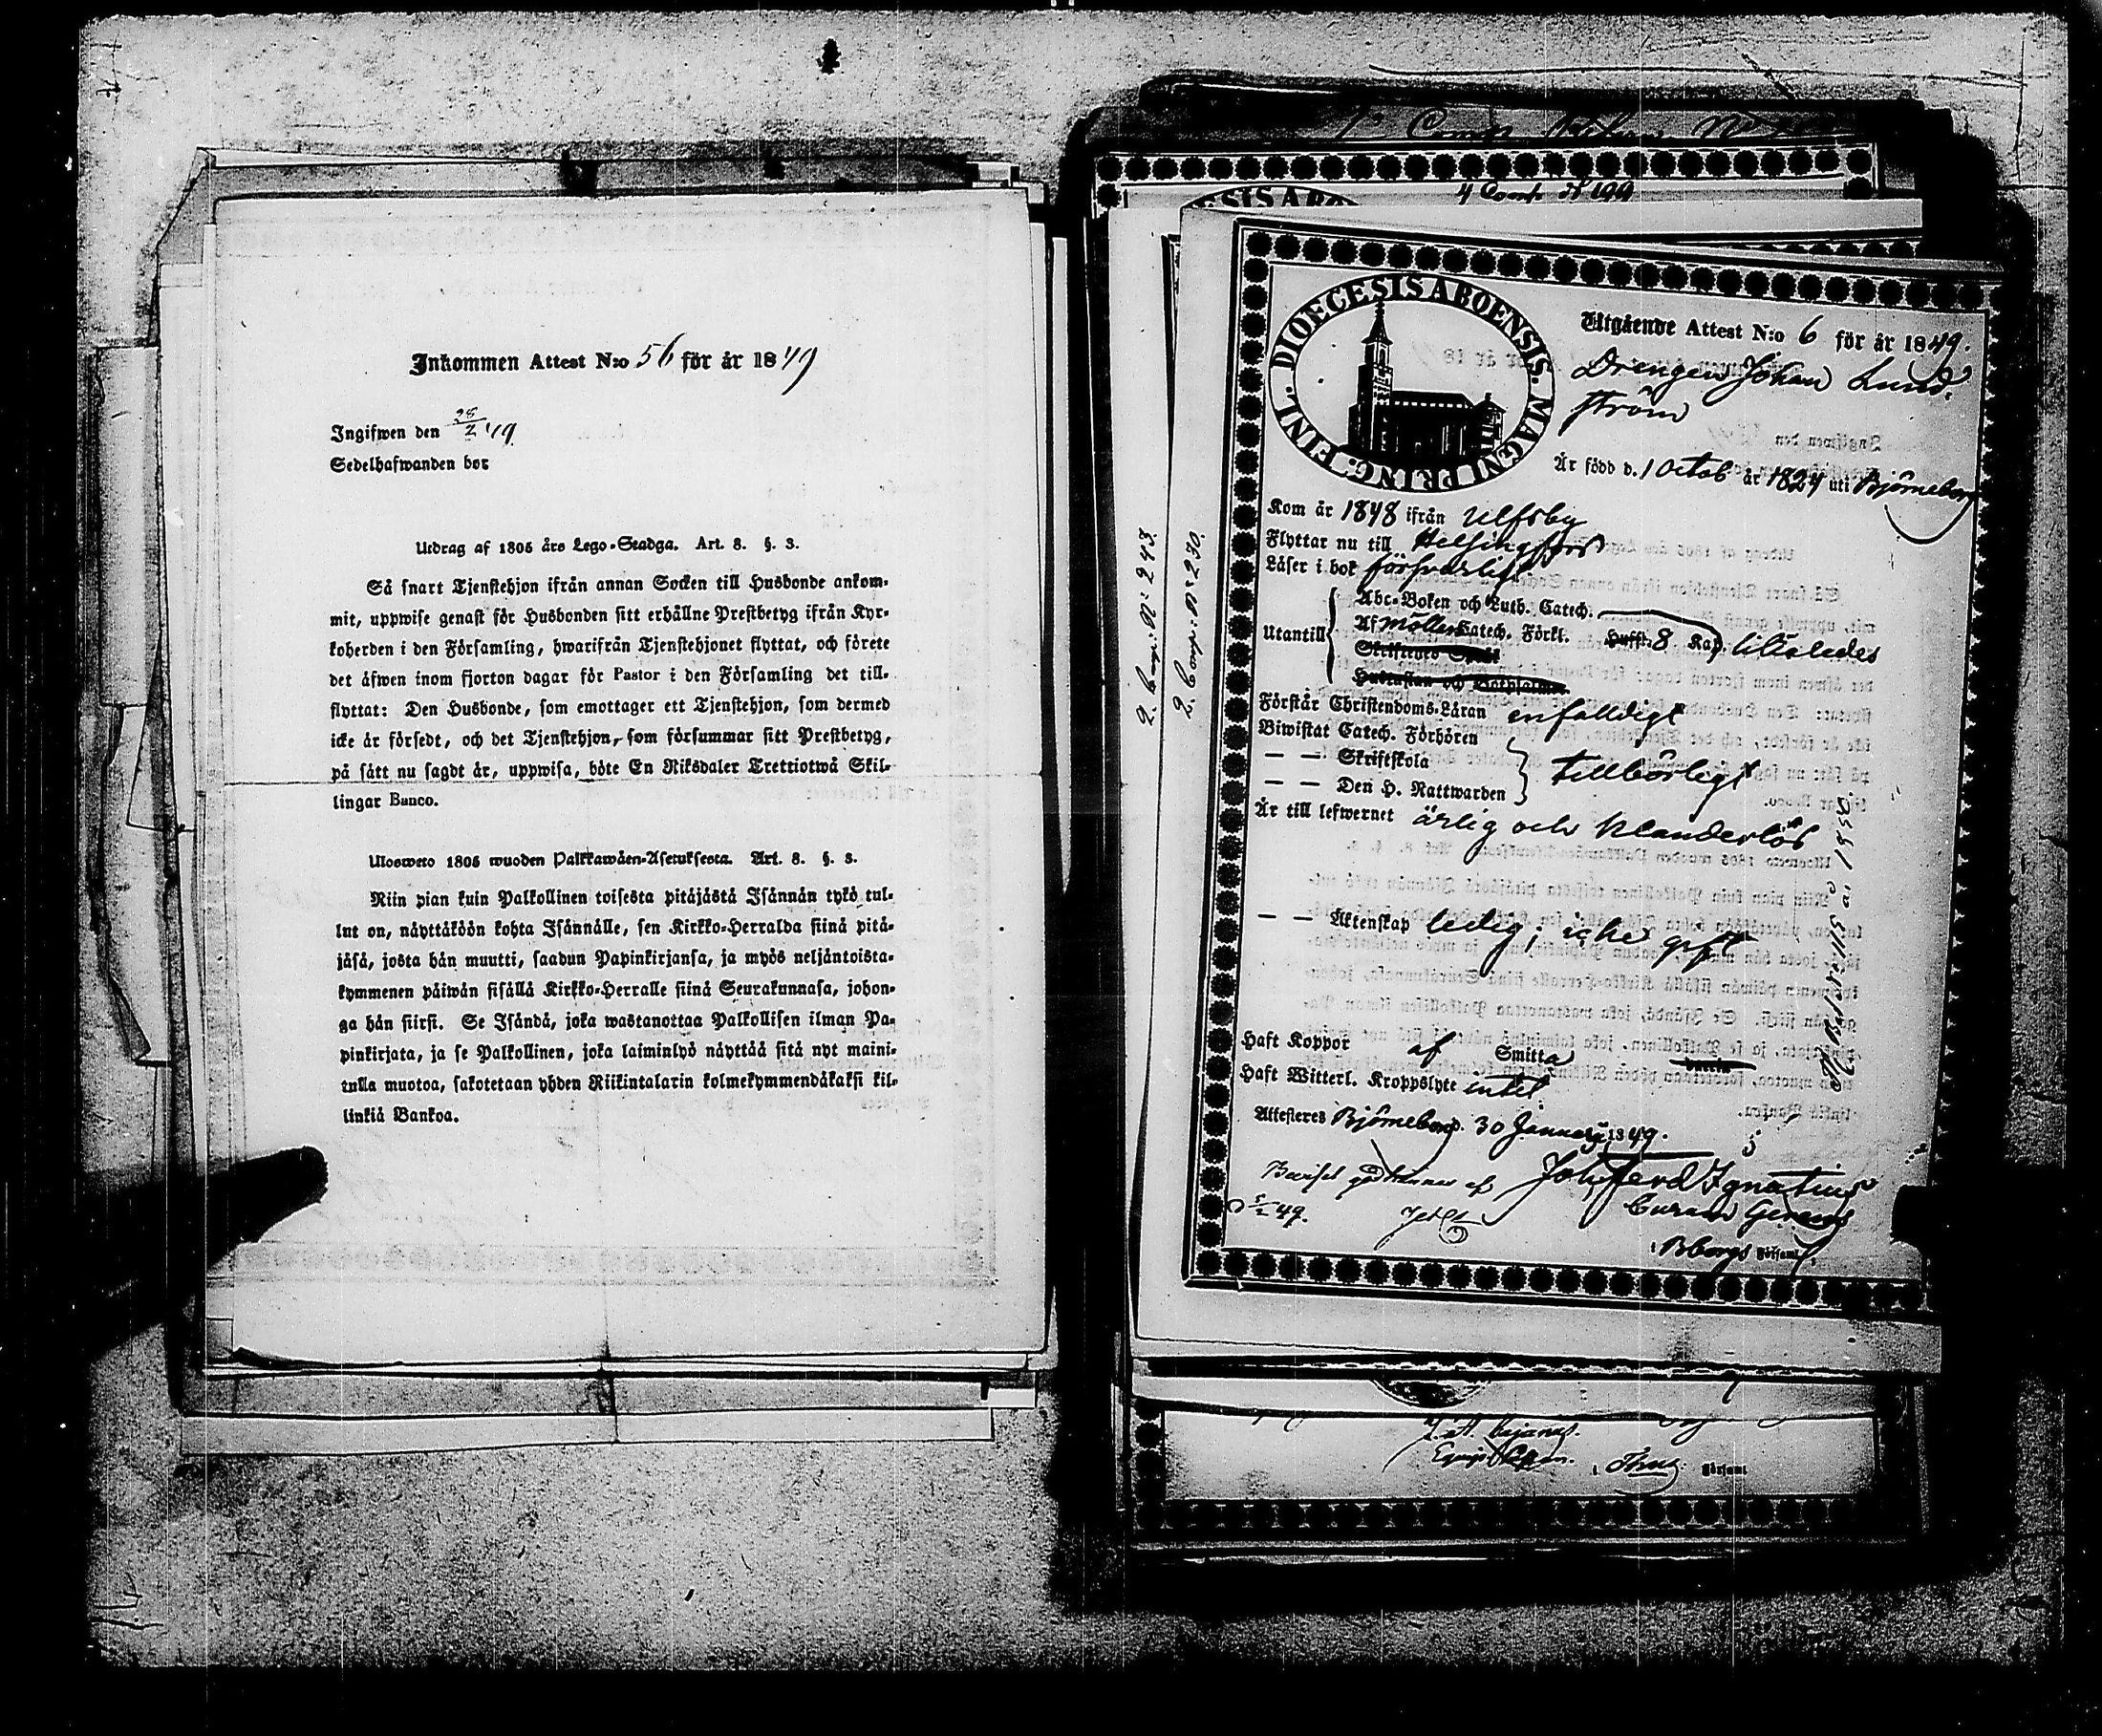 Inkommen Attest N:o 56 för år 1849
Ingifwen den 28/2 49.
Sedelhafwanden bor
Utdrag af 1805 års Lego-Stadga. Art. 8. §. 3.
Så snart Tjenstehjon ifrån annan Socken till Husbonde ankom-
mit, uppwise genast för Husbonden sitt erhållne Prestbetyg ifrån Kyr-
koherden i den Församling, hwarifrån Tjenstehjonet flyttat, och förete
det äfwen inom fjorton dagar för Pastor i den Församling det till-
flyttat: Den Husbonde, som emottager ett Tjenstehjon, som dermed
icke är försedt, och det Tjenstehjon, som försummar sitt Prestbetyg,
på sätt nu sagdt är, uppwisa, böte En Riksdaler Trettiotwå Skil-
lingar Banco.
Ulosweto 1805 wuoden Palkkawäen-Asetuksesta. Art. 8. §. 3.
Niin pian kuin Palkollinen toisesta pitäjästä Isännän tykö tul-
lut on, näyttäköön kohta Isännälle, sen Kirkko-Herralda siinä pitä-
jäsä, josta hän muutti, saadun Papinkirjansa, ja myös neljäntoista-
kymmenen päiwän sisällä Kirkko-Herralle siinä Seurakunnasa, johon-
ga hän siirsi. Se Isändä, joka wastanottaa Palkollisen ilman Pa-
pinkirjata, ja se Palkollinen, joka laiminlyö näyttää sitä nyt maini-
tulla muotoa, sakotetaan yhden Riikintalarin kolmekymmendäkaksi kil-
linkiä Bankoa.
4 Comp. N 199
DIOECESIS ABOENSIS. MAGNI PRINC. FINL.
Utgående Attest N:o 6 för år 1849.
Drengen Johan Lund-
ström
Är född d. 1 Octob år 1824 uti Björneborg
Kom år 1848 ifrån Ulfsby
Flyttar nu till Helsingfors
Läser i bok försvarligt
Utantill
Abc-Boken och Luth. Catech.
Af Möllers Catech. Förkl. Hufst. 8 Kap. liksoledes
Skriftenes Språk
Hustaflan och Botpsalmer
Förstår Christendoms-Läran enfalldigt
Biwistat Catech. Förhören
— — Skriftskola
— — Den H. Nattwarden
tillbörligt
Är till lefwernet ärlig och klanderlös
— — Äktenskap ledig; icke gift
Haft Koppor af Smitta
Haft Witterl. Kroppslyte intet
Attesteres Björneborg d. 30 Januarii 1849.
Joh. Ferd Ignatius
Curam Gerens
i Bborgs Församl.
Beviset godkännes af
5/2 49.
2. Comp. N: 243.
2. Comp. N: 230.
Församl